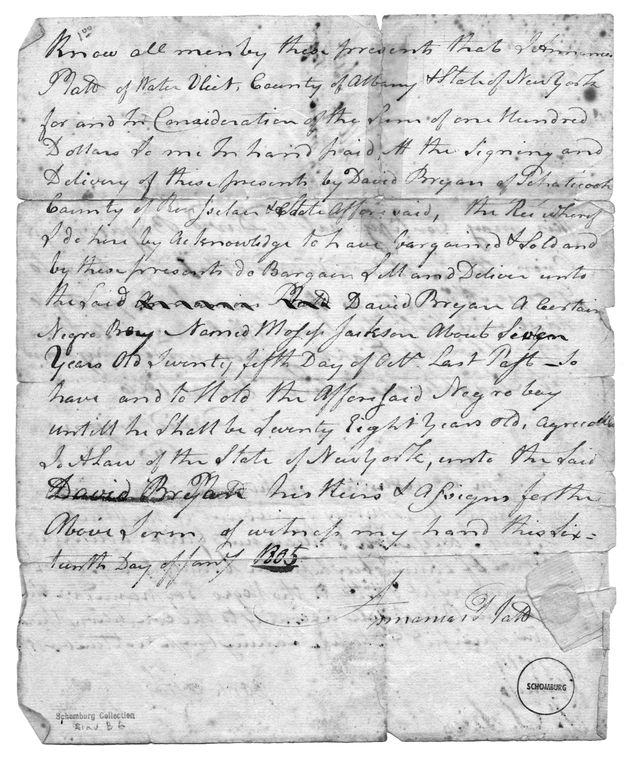 100
Know all men by these presents that I Annanias
Platt of Water Vliet, County of Albany & State of New York
for and In Consideration of the Sum of one Hundred
Dollars To me In hand paid, At the Signing and
Delivery of these presents by David Bryan of Schaticook
County of Rensselaer & State Afforesaid, the Rec whereof
I do here by Acknowledge to have bargained & Sold and
by these presents do Bargain Sell and Deliver unto
the Said David Bryan A Certain
Negro Boy Named Moses Jackson About Seven
Years Old Twenty fifth Day of Octr. Last Past — To
have and to Hold the Afforesaid Negro boy
untill he Shall be Twenty Eight Years old, agreeable
To A Law of the State of New York, unto the Said
David Bryan his Heirs & Assigns for the
Above Term of witness my hand this Six=
teenth Day of Jany 1805
Annanias Platt
SCHOMBURG
Schomburg Collection